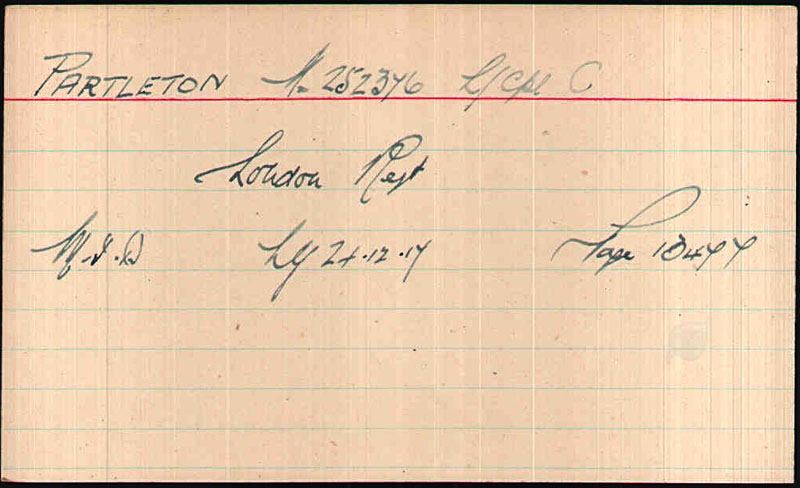 PARTLETON No 252376 L/Cpl C
London Regt
M.I.D LG 24.12.17 Page 13477